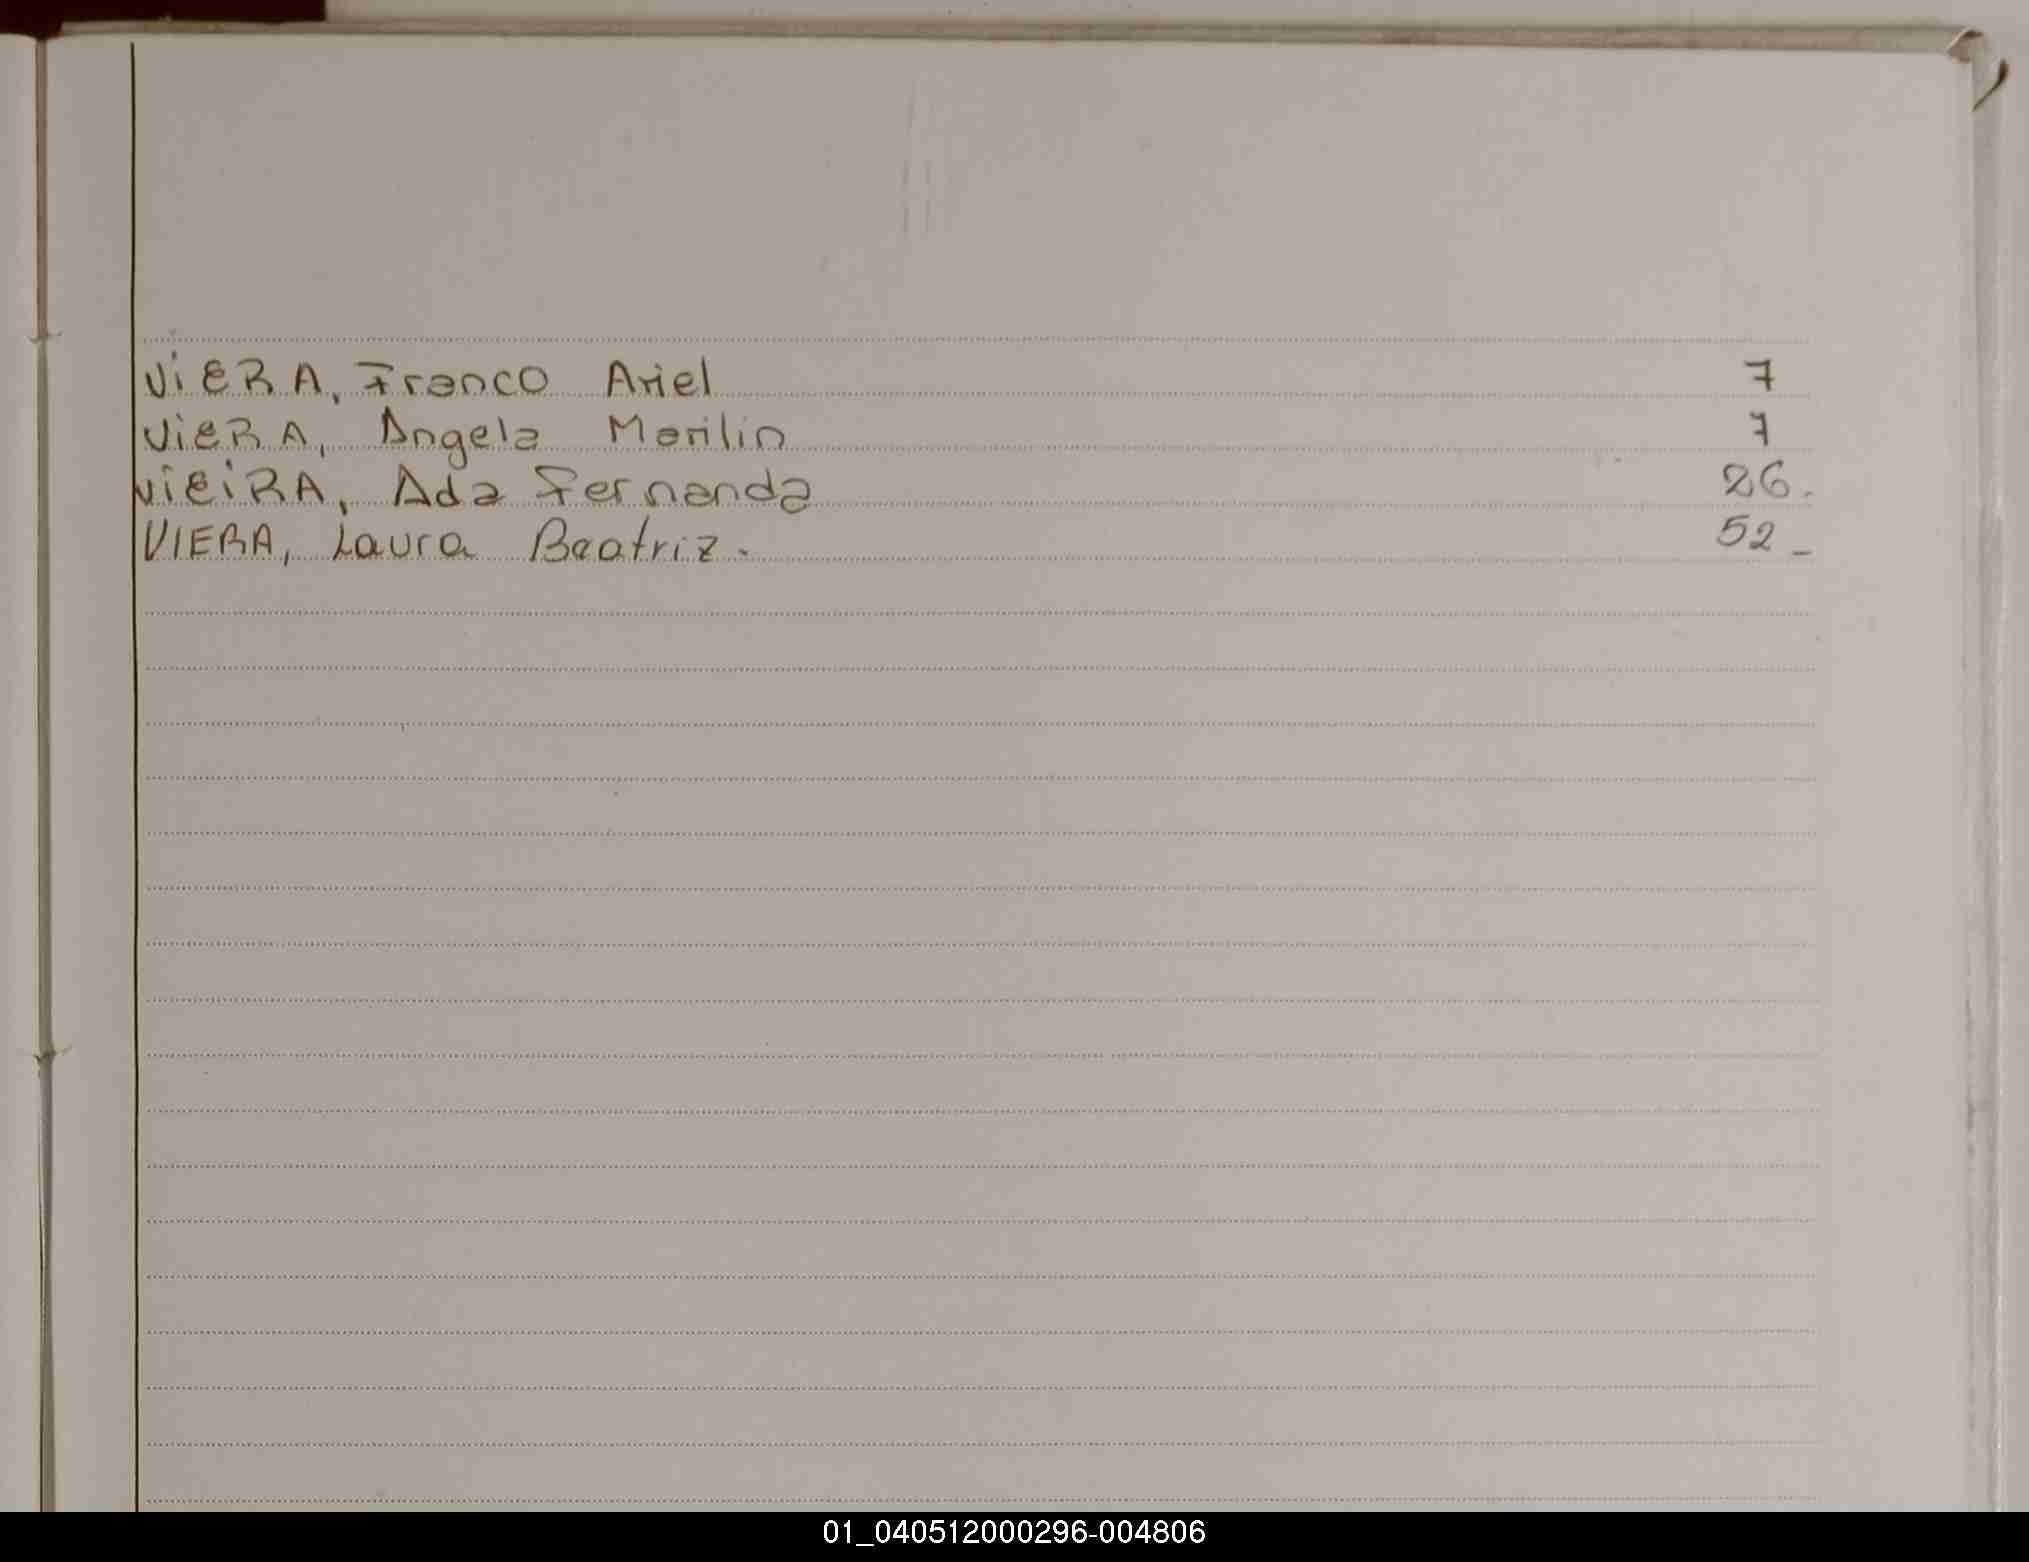 ViERA, Franco Ariel 7
ViERA, Angela Marilin 7
ViEiRA, Ada Fernanda 26.
VIERA, Laura Beatriz. 52-
01_040512000296-004806